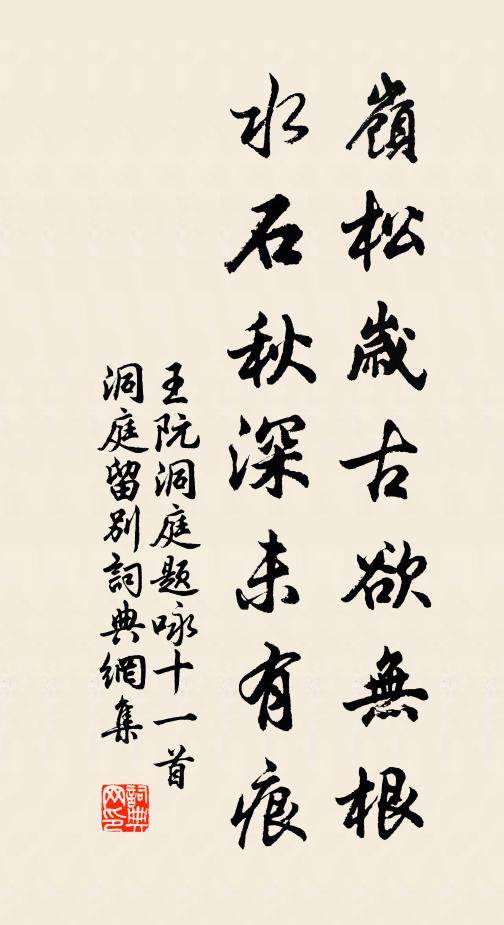 嶺松歲古欲無根
水石秋深未有痕
王阮洞庭題咏十一首
洞庭留別詞典網集
詞典
网印